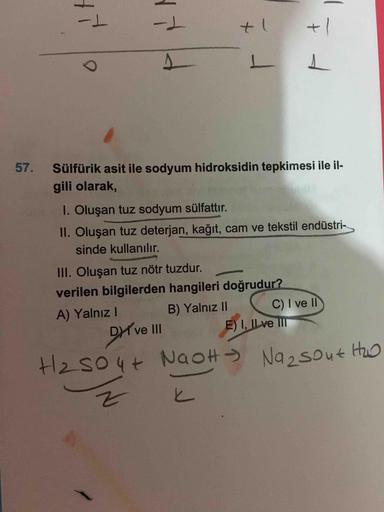 -1 -1 +1 +1
0 1 1 1
57. Sülfürik asit ile sodyum hidroksidin tepkimesi ile il-
gili olarak,
I. Oluşan tuz sodyum sülfattır.
II. Oluşan tuz deterjan, kağıt, cam ve tekstil endüstri-
sinde kullanılır.
III. Oluşan tuz nötr tuzdur.
verilen bilgilerden hangileri doğrudur?
A) Yalnız I B) Yalnız II C) I ve II
D) I ve III E) I, II ve III
H2SO4+ NaOH → Na2SO4+ H2O
Z K